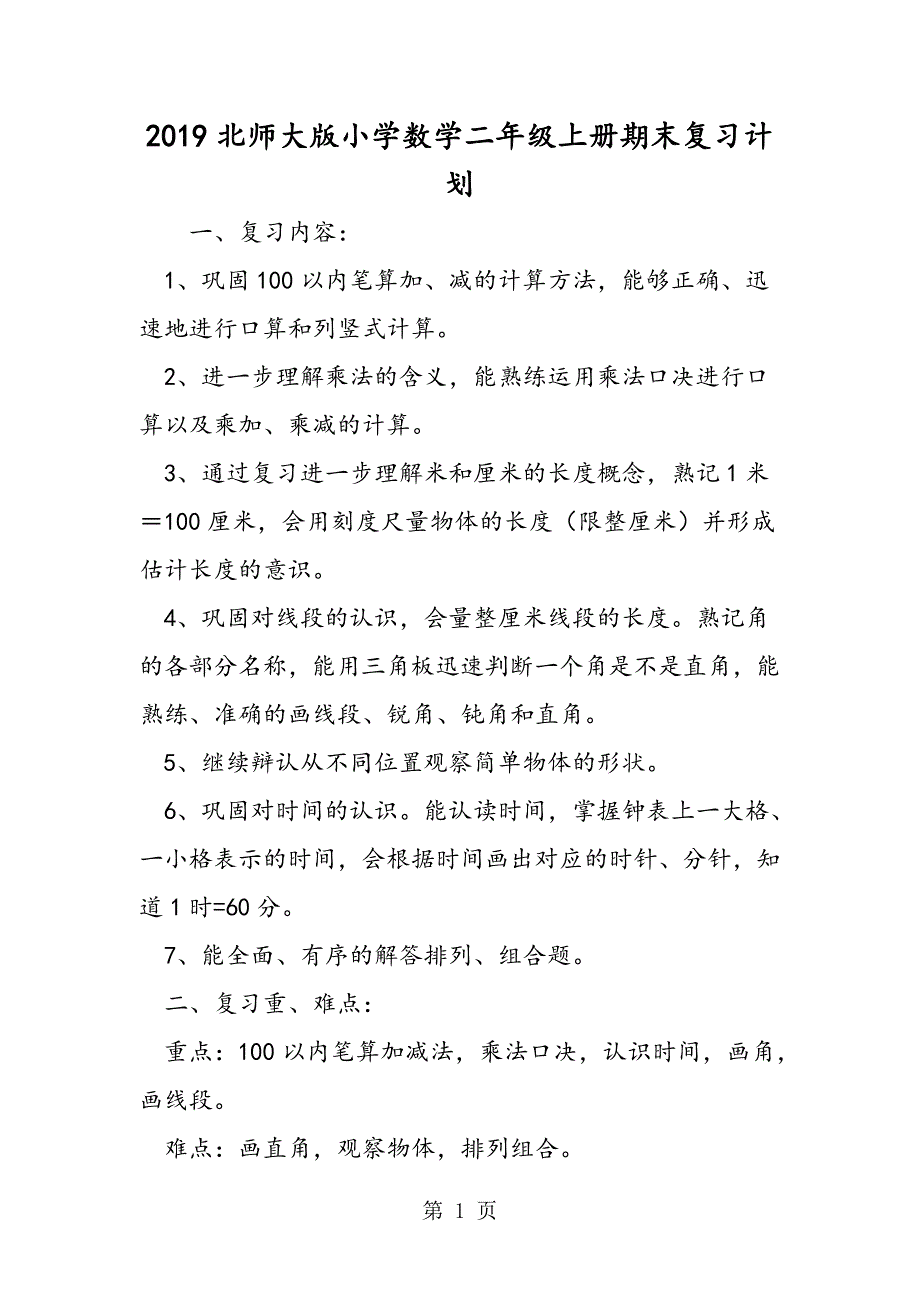 2019 北师大版小学数学二年级上册期末复习计
划
一、复习内容：
1、巩固 100 以内笔算加、减的计算方法，能够正确、迅
速地进行口算和列竖式计算。
2、进一步理解乘法的含义，能熟练运用乘法口决进行口
算以及乘加、乘减的计算。
3、通过复习进一步理解米和厘米的长度概念，熟记 1 米
＝100 厘米，会用刻度尺量物体的长度（限整厘米）并形成
估计长度的意识。
4、巩固对线段的认识，会量整厘米线段的长度。熟记角
的各部分名称，能用三角板迅速判断一个角是不是直角，能
熟练、准确的画线段、锐角、钝角和直角。
5、继续辩认从不同位置观察简单物体的形状。
6、巩固对时间的认识。能认读时间，掌握钟表上一大格、
一小格表示的时间，会根据时间画出对应的时针、分针，知
道 1 时=60 分。
7、能全面、有序的解答排列、组合题。
二、复习重、难点：
重点：100 以内笔算加减法，乘法口决，认识时间，画角，
画线段。
难点：画直角，观察物体，排列组合。
第 1 页